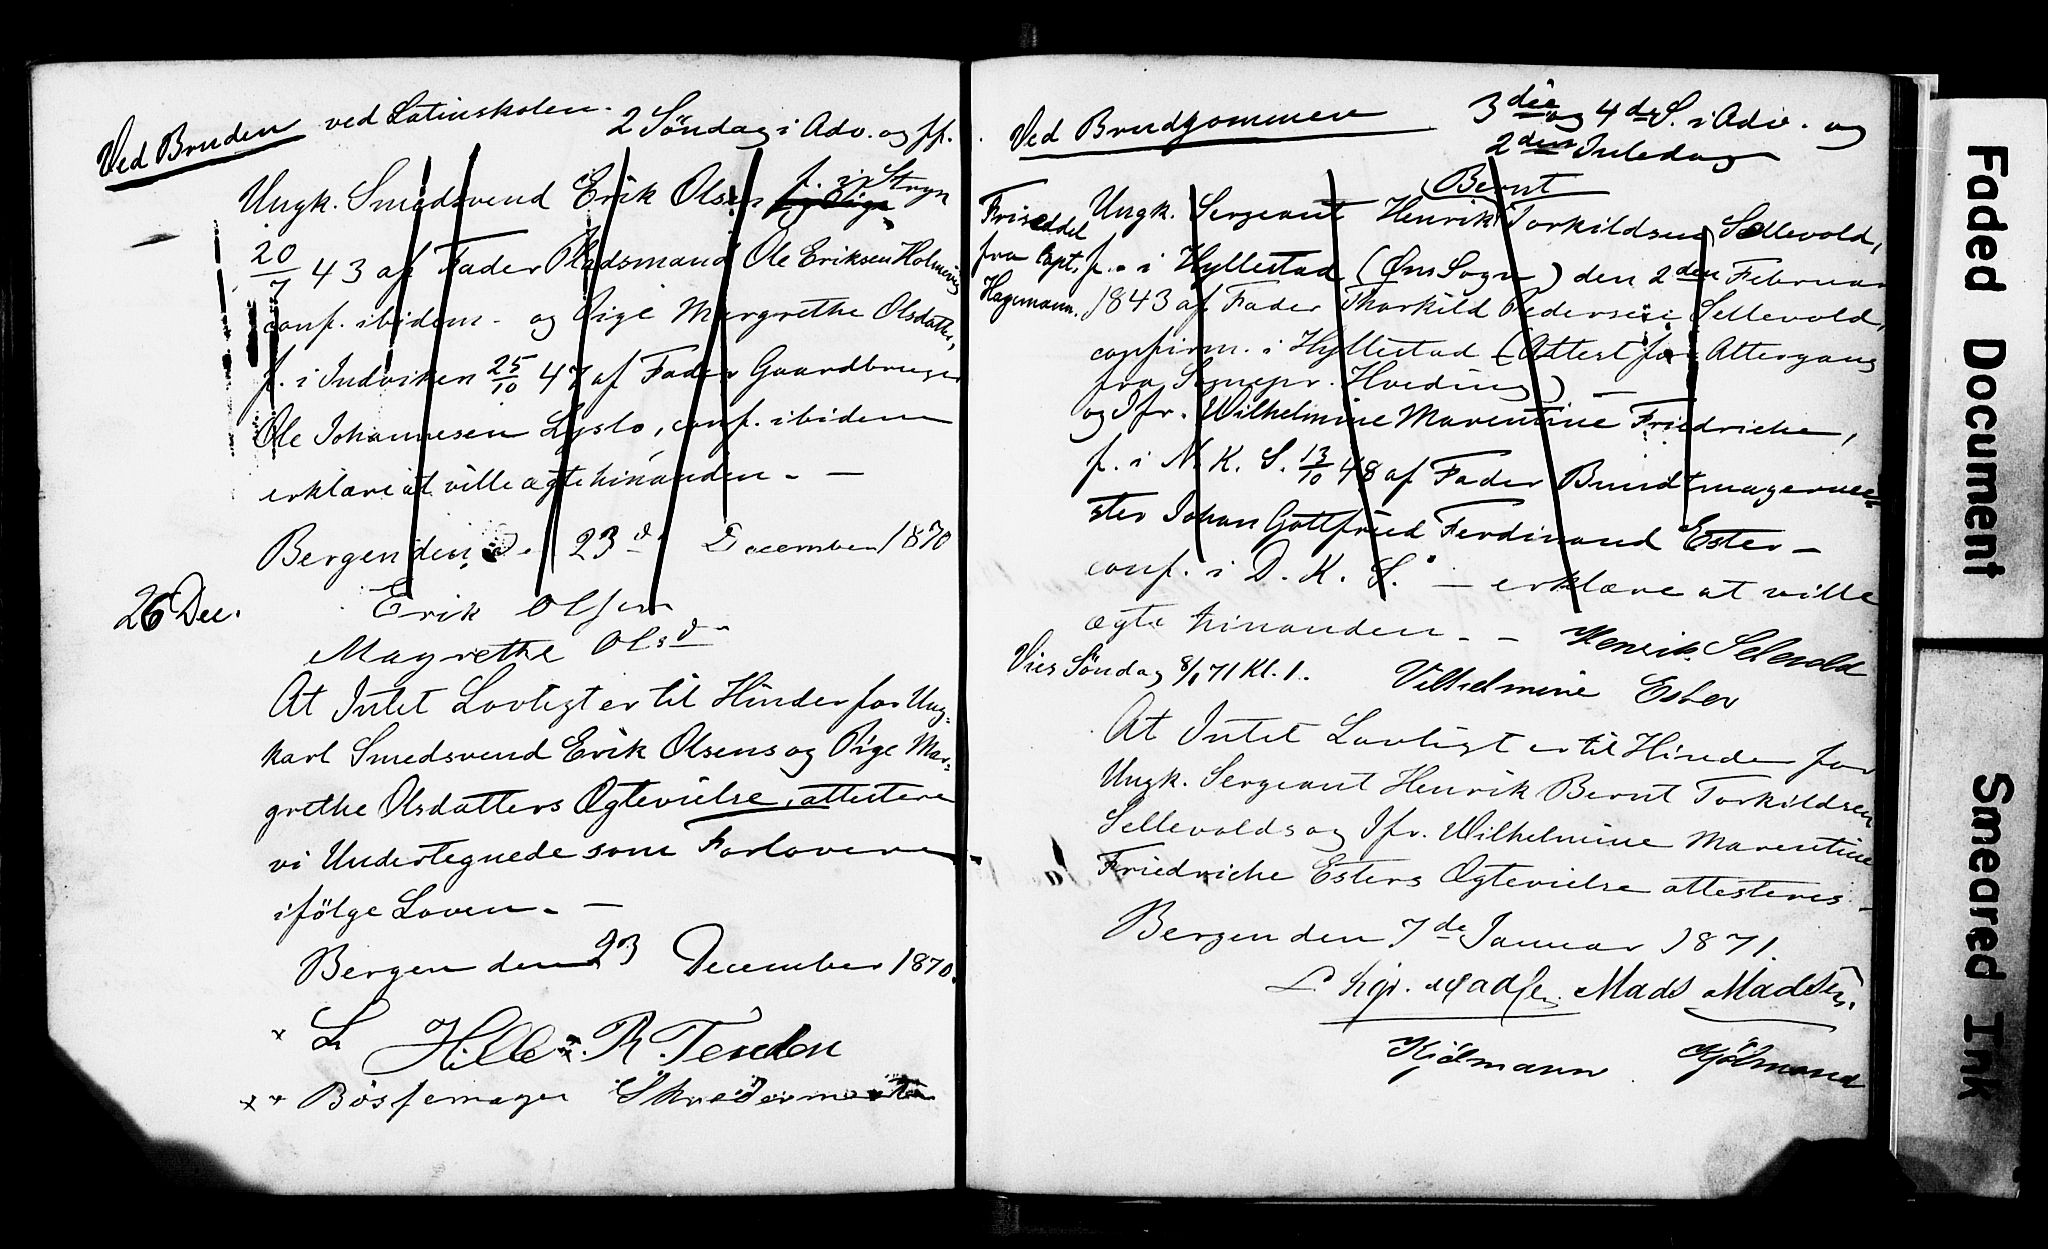 Ved Bruden ved Latinskolen.
2 Söndag i Adv. og ff.
Ungk. Smedsvend Erik Olsen f. i Stryn
20/7 43 af Fader Pladsmand Ole Eriksen Holmevig
conf. ibidem - og Pige Margrethe Olsdatter,
f. i Indviken 25/10 47 af Fader Gaardbruger
Ole Johannesen Lyslo, conf. ibidem
erklære at ville ægte hinanden. —
Bergen den 23d December 1870
26 Dec.
Erik Olsen
Magrethe Olsd
At Intet Lovligt er til Hinder for Ung-
karl Smedsvend Erik Olsens og Pige Mar-
grethe Olsdatters Ægtevielse, attestere
vi Undertegnede som Forlovere
ifölge Loven. —
Bergen den 23 December 1870.
L Hille R. Tenden
Bösfemager Skredermester
Ved Brudgommen
3die og 4de S. i Adv. og
2den Juledag
Friseddel
fra Capt.
Hagemann.
Bernt
Ungk. Sergeant Henrik Torkildsen Sellevold,
f. i Hyllestad (Øns Sogn) den 2den Februar
1843 af Fader Thorkild Pedersen Sellevold,
confirm. i Hyllestad (Attest for Altergang
fra Sognepr. Hveding) —
og Jfr. Wilhelmine Marentine Friedriche,
f. i N. K. S. 13/10 48 af Fader Bundtmagerme-
ster Johan Gottfried Ferdinand Ester —
conf. i D. K. S. — erklære at ville
ægte hinanden. —
Henrik Selevold
Vies Söndag 8/1 71 Kl. 1.
Vilhelmine Ester
At Intet Lovligt er til Hinder for
Ungk. Sergeant Henrik Bernt Torkildsen
Sellevolds og Jfr. Wilhelmine Marentine
Friedriche Esters Ægtevielse attesteres -
Bergen den 7de Januar 1871.
Madsen. Mads Madsen.
Kjölmann Kjölmand
Faded Document
Smeared Ink